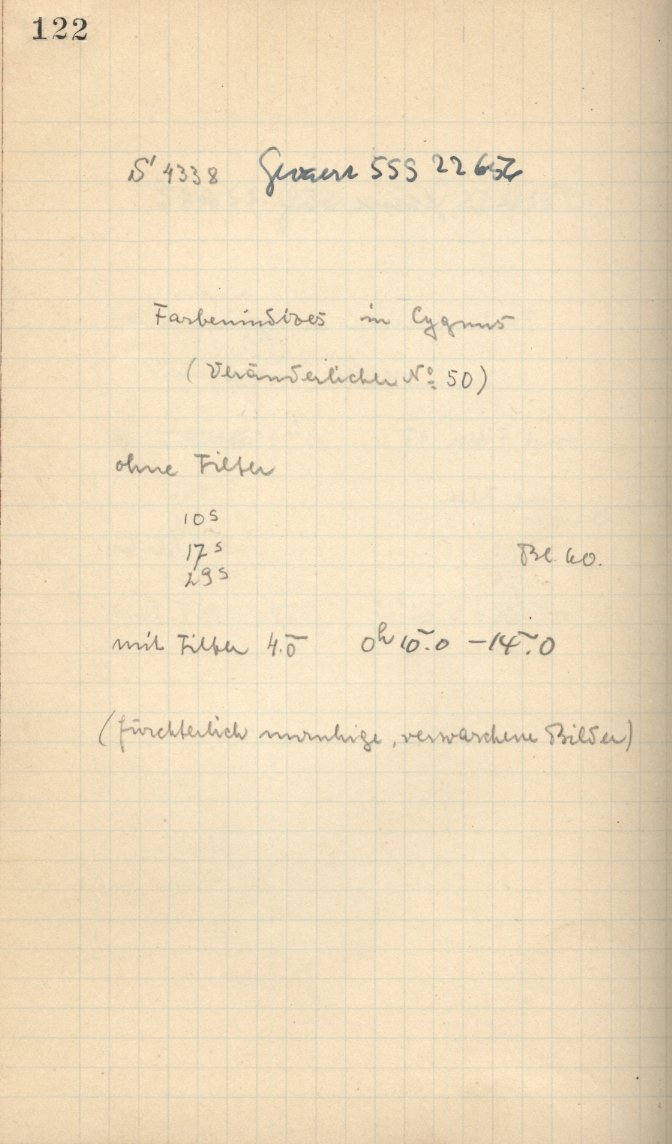 122
S 4338 Gevaert SSS 22656
Farbenindices in Cygnus
(Veränderlicher No 50)
ohne Filter
10s
17s
29s
Bl. 60.
mit Filter 4.5 0h 10.0 – 14.0
(fürchterlich unruhige, verwaschene Bilder)